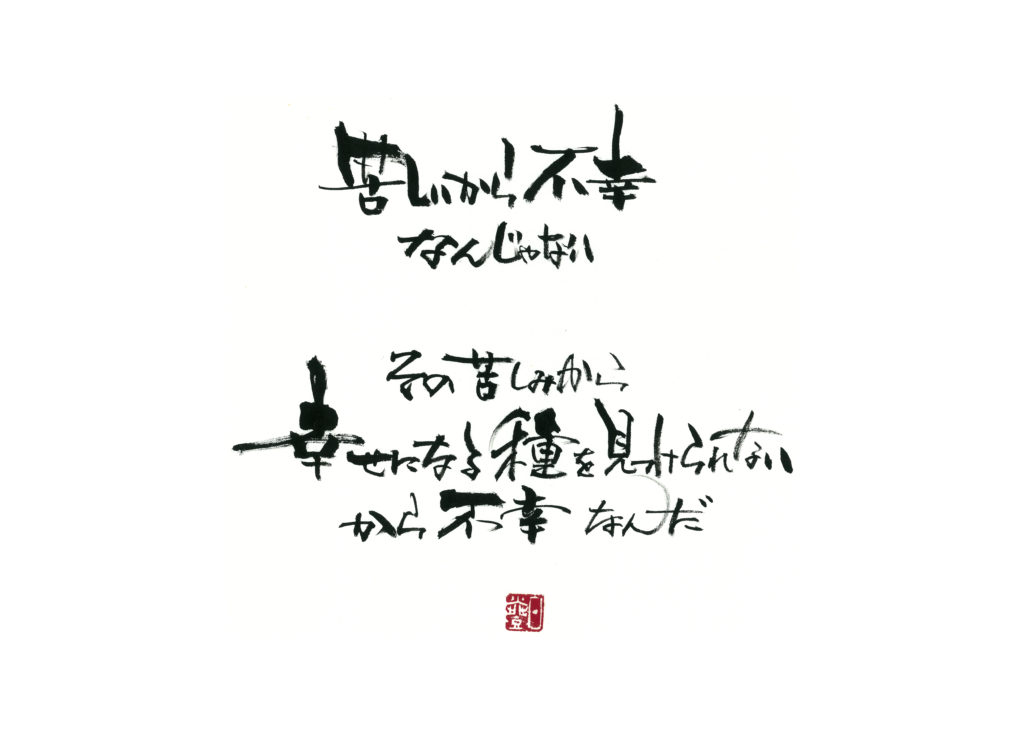 苦しいから不幸
なんじゃない
その苦しみから
幸せになる種を見つけられない
から不幸なんだ